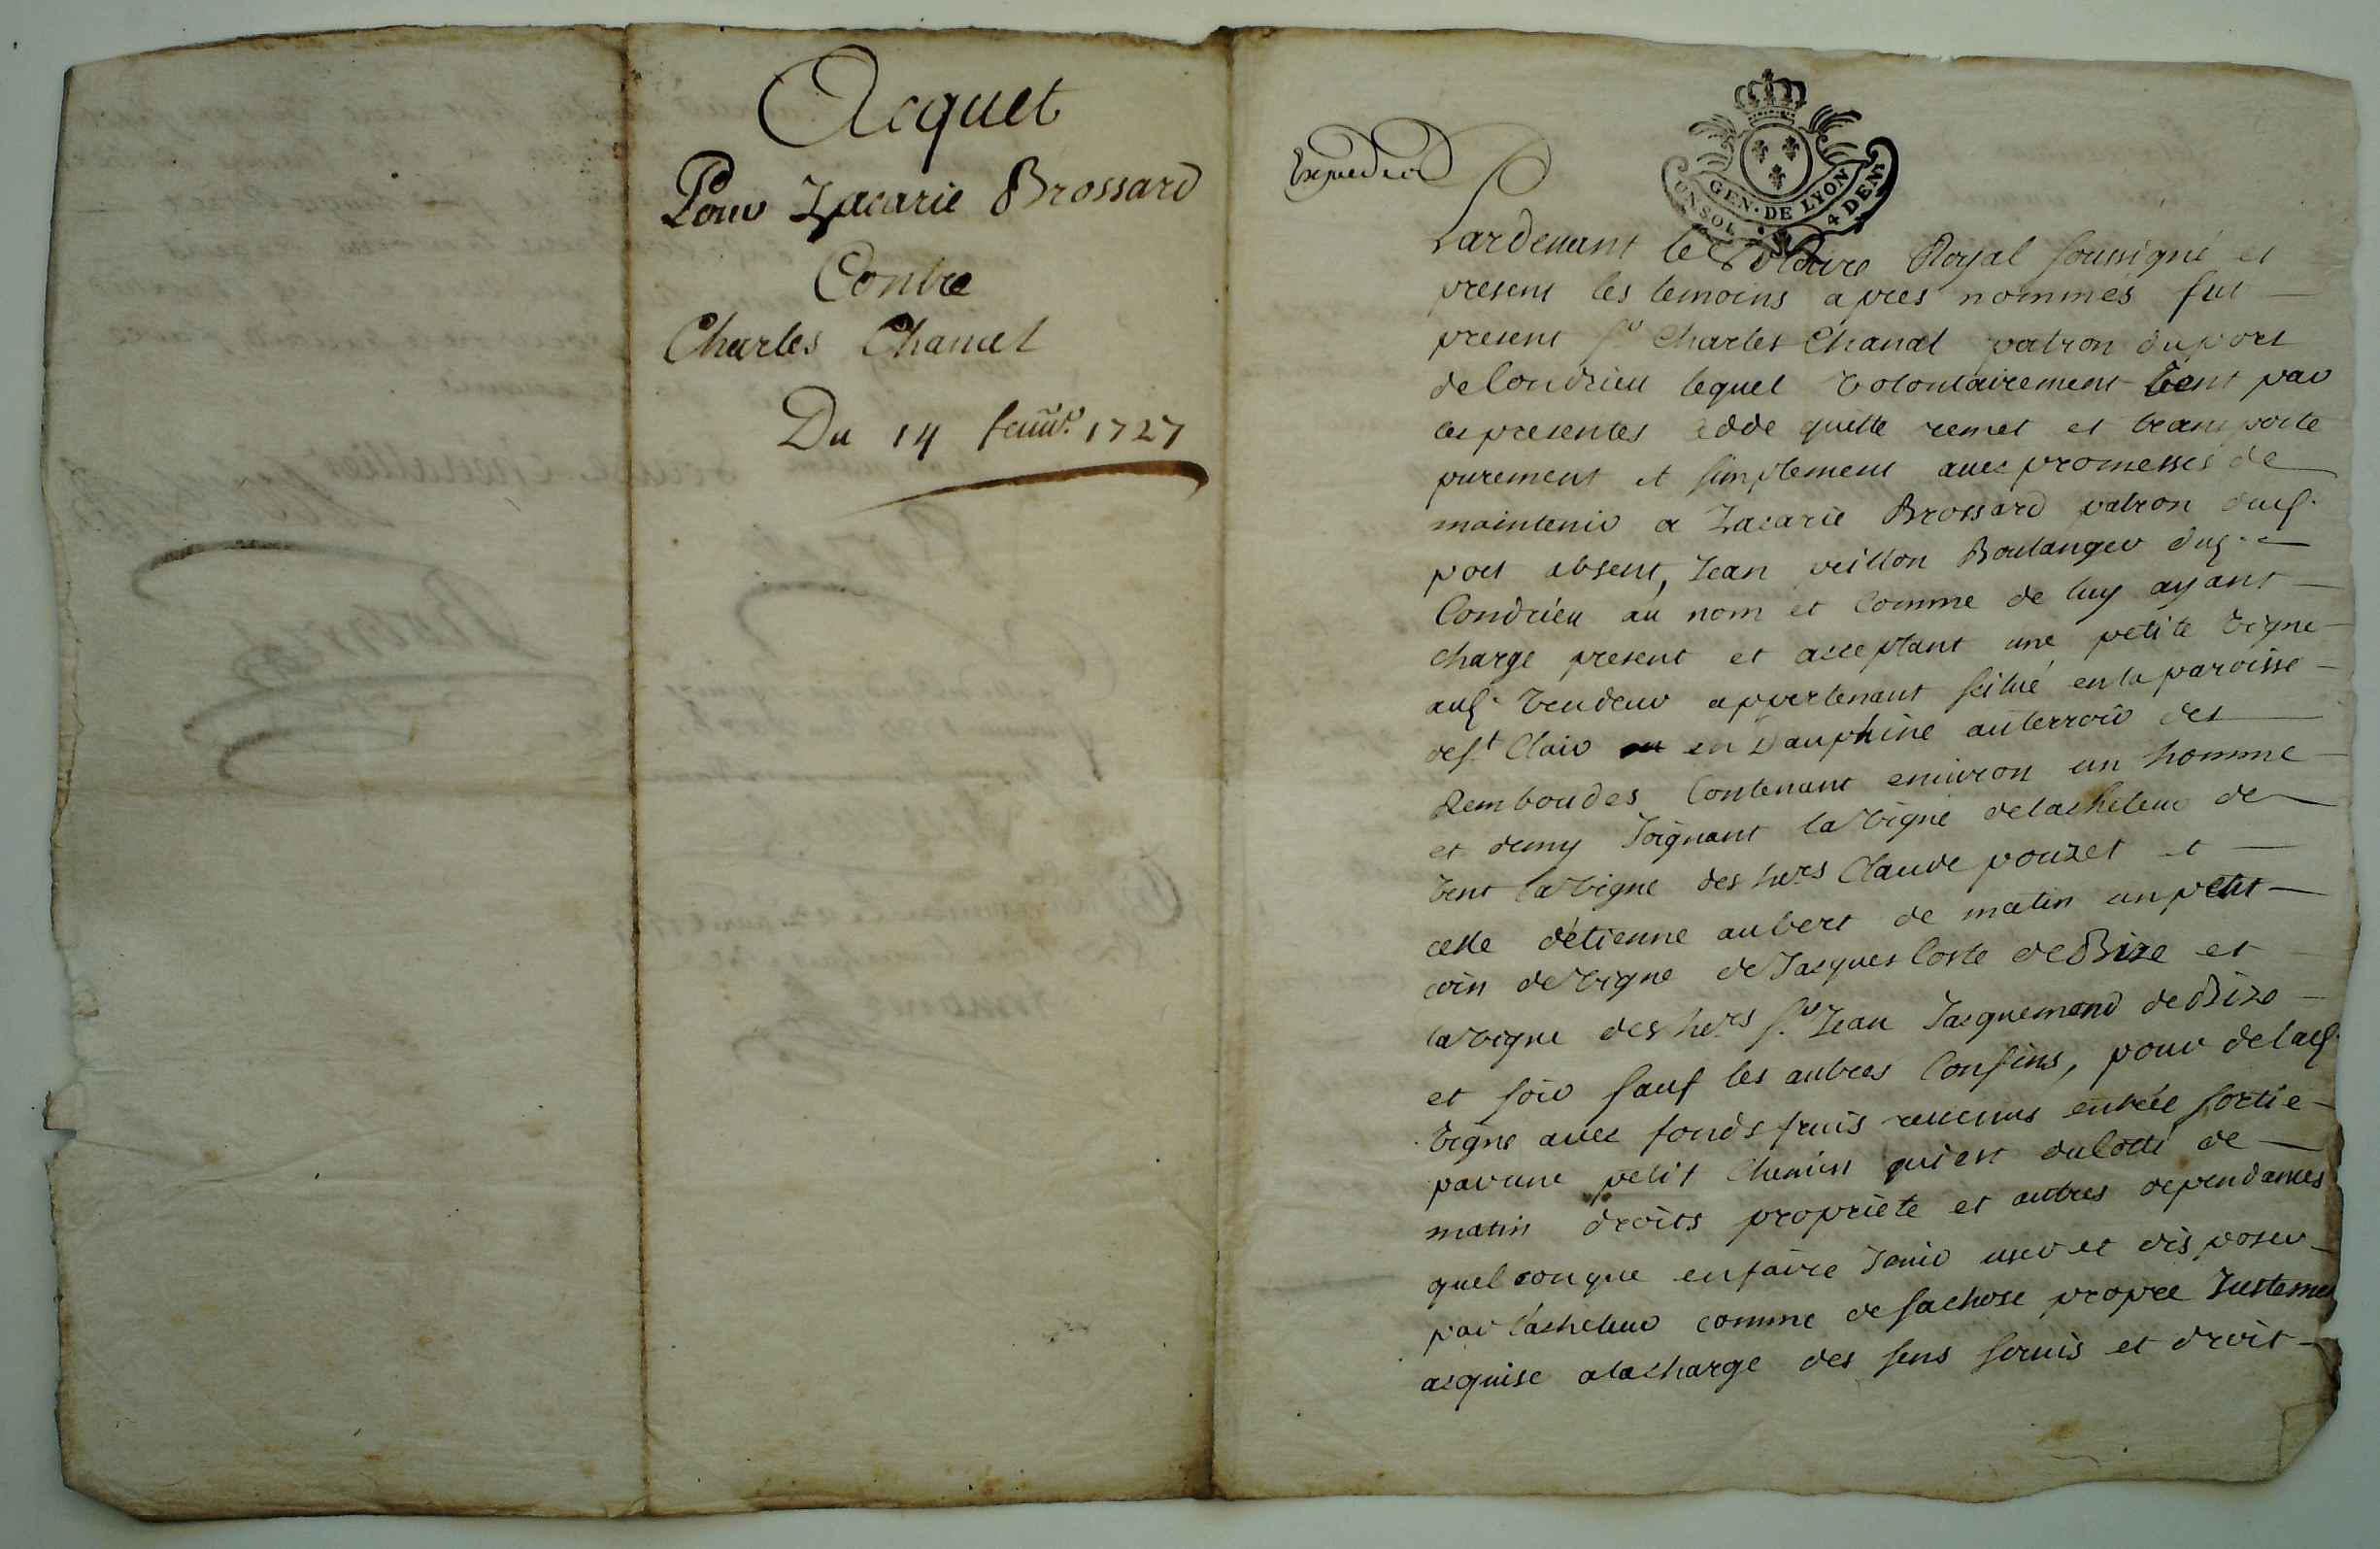 Acquet
Pour Zacarie Brossard
Contre
Charles Chanal
Du 14 feuu.r 1727
Expedié
GEN. DE LYON
4 DEN.
Pardeuant le Notaire Royal soussigné et
present les temoins apres nommes fut
present s.r Charles Chanal patron du port
de Condrieu lequel volontairement vent par
ces presentes cedde quitte remet et transporte
purement et simplement auec promesses de
maintenir a Zacarie Brossard patron dud.
port absent, Jean peillon Boulanger dud.
Condrieu au nom et comme de luy ayant
charge present et acceptant une petite vigne
aud. vendeur appertenant scitué en la paroisse
de s.t Clair en Dauphiné au terroir des
Remboudes contenant enuiron un homme
et demy Joignant la vigne de lacheteur de
vent la vigne des hers Claude pouzet et
celle détienne aubert de matin un petit
coin de vigne de Jacques Coste de Bize et
la vigne des hers s.r Jean Jacquemond de Bize
et soir sauf les autres Confins, pour de lad.
vigne auec fonds fruis reuenus entrée sortie
par une petit chemin qui est du Cotté de
matin droits proprieté et autres dependances
quelconque en faire Jouir user et disposer
par l'acheteur comme de sa chose propre Justeme
acquise a la charge des sens seruis et droit